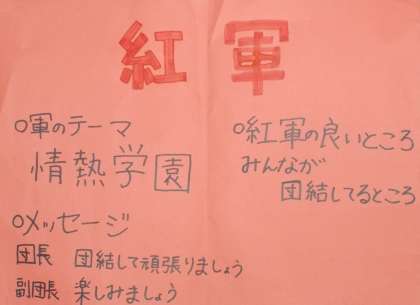 紅軍
○軍のテーマ
情熱学園
○メッセージ
団長 団結して頑張りましょう
副団長 楽しみましょう
○紅軍の良いところ
みんなが
団結してるところ